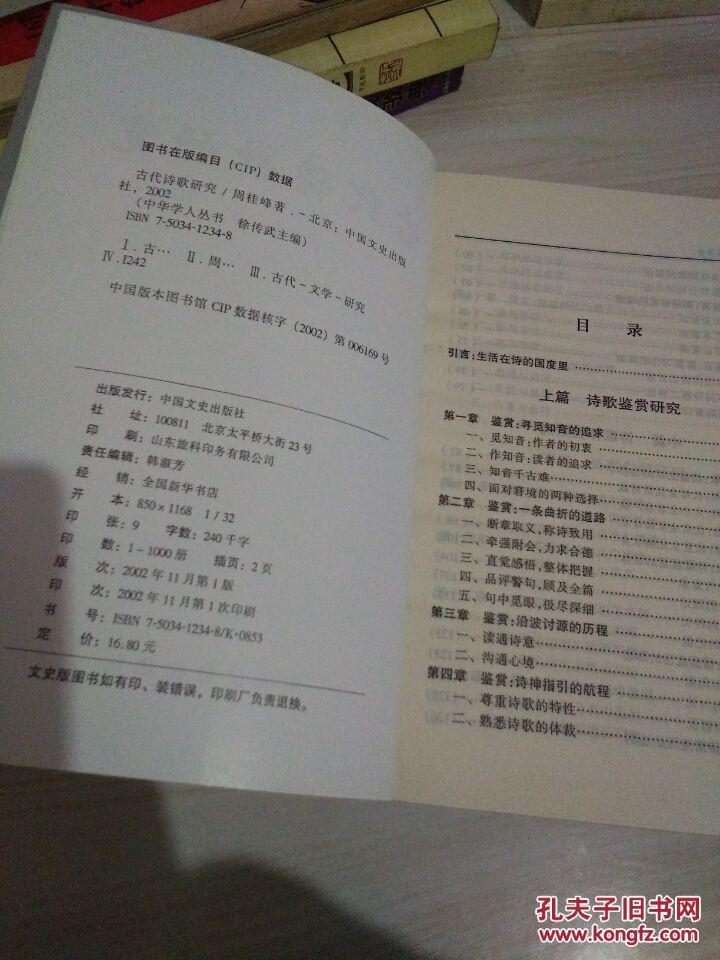 图书在版编目（CIP）数据
古代诗歌研究/周桂峰著.-北京：中国文史出版
社，2002
（中华学人丛书 徐传武主编）
ISBN 7-5034-1234-8
Ⅰ.古… Ⅱ.周… Ⅲ.古代-文学-研究
Ⅳ.I242
中国版本图书馆CIP数据核字（2002）第006169号
出版发行：中国文史出版社
社 址：100811 北京太平桥大街23号
印 刷：山东旅科印务有限公司
责任编辑：韩淑芳
经 销：全国新华书店
开 本：850×1168 1/32
印 张：9 字数：240千字
印 数：1-1000册 插页：2页
版 次：2002年11月第1版
印 次：2002年11月第1次印刷
书 号：ISBN 7-5034-1234-8/K·0853
定 价：16.80元
文史版图书如有印、装错误，印刷厂负责退换。
目 录
引言：生活在诗的国度里
上篇 诗歌鉴赏研究
第一章 鉴赏：寻觅知音的追求
一、觅知音：作者的初衷
二、作知音：读者的追求
三、知音千古难
四、面对窘境的两种选择
第二章 鉴赏：一条曲折的道路
一、断章取义，称诗致用
二、牵强附会，力求合德
三、直觉感悟，整体把握
四、品评警句，顾及全篇
五、句中觅眼，拔尽深细
第三章 鉴赏：沿波讨源的历程
一、读通诗意
二、沟通心境
第四章 鉴赏：诗神指引的航程
一、尊重诗歌的特性
二、熟悉诗歌的体裁
孔夫子旧书网
www.kongfz.com